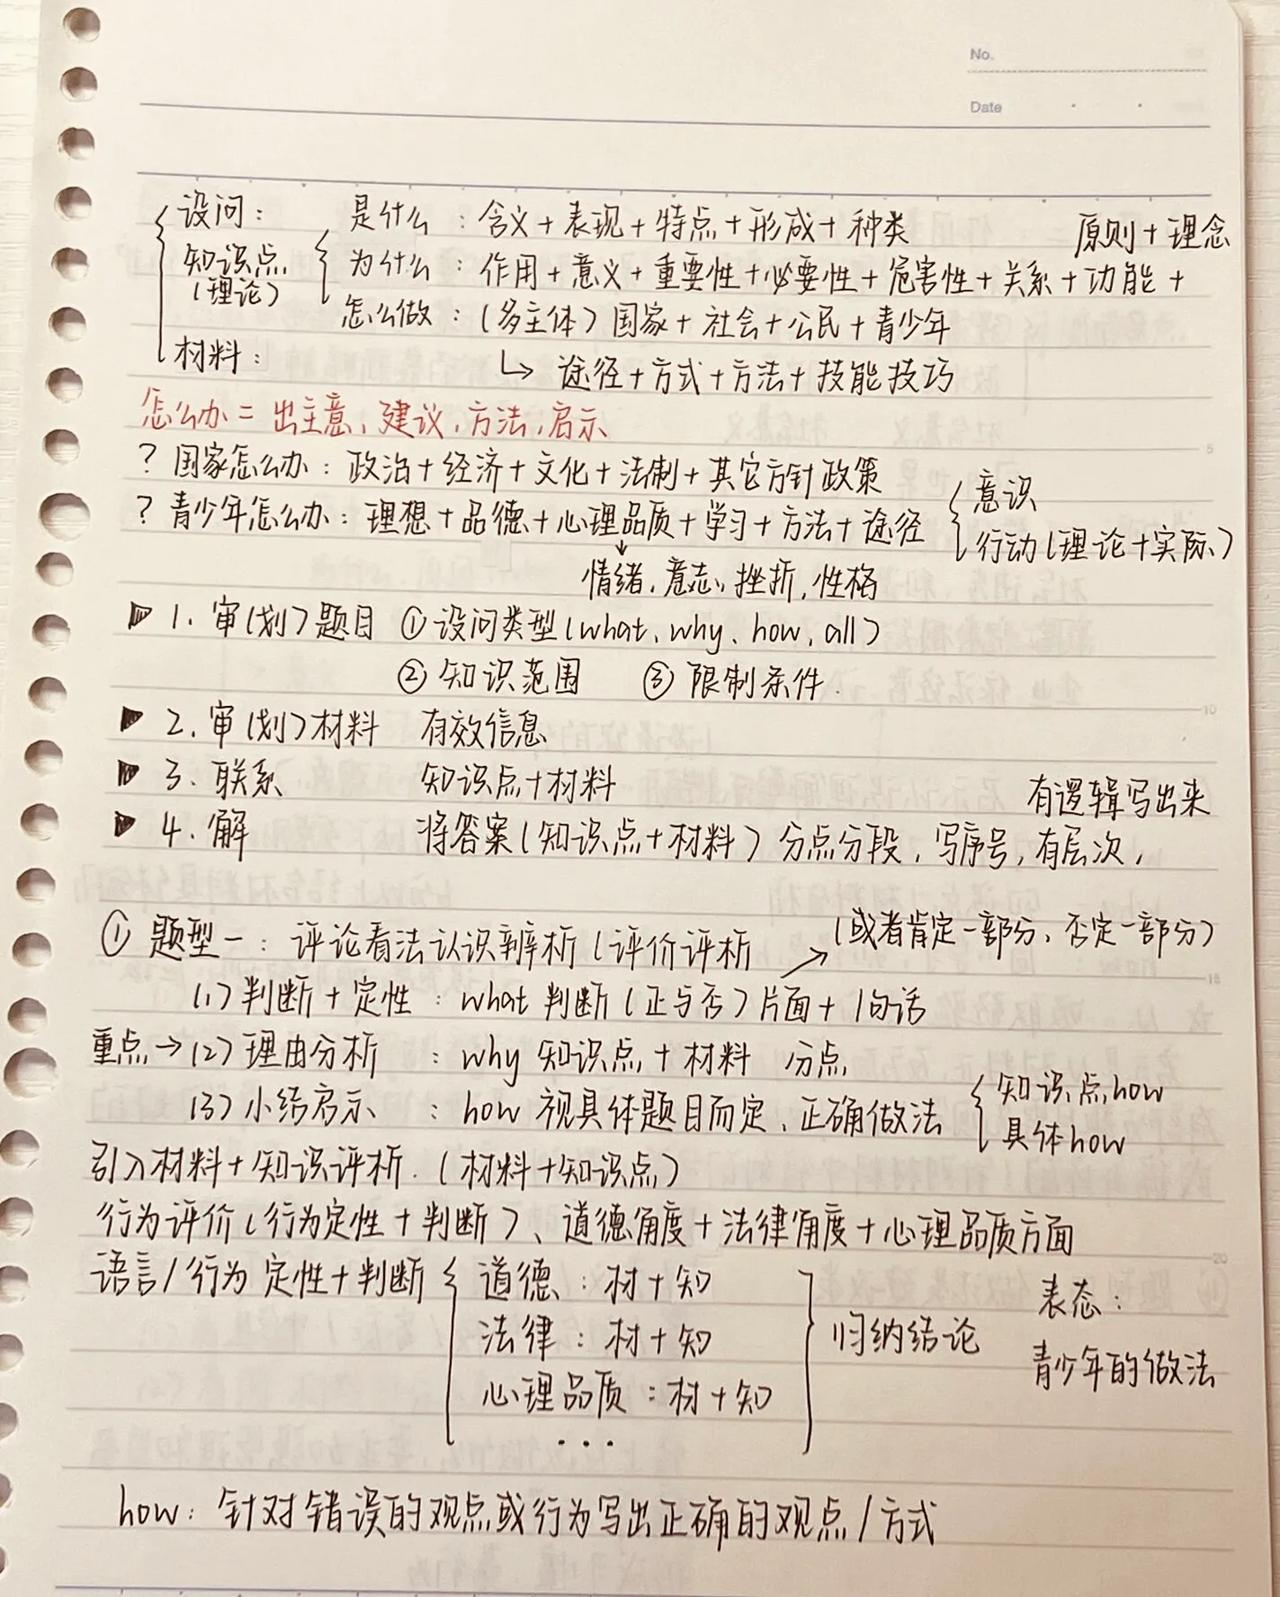 No.
Date
设问：
是什么：含义+表现+特点+形成+种类
原则+理念
知识点
(理论)
为什么：作用+意义+重要性+必要性+危害性+关系+功能+
怎么做：(多主体)国家+社会+公民+青少年
材料：
↳ 途径+方式+方法+技能技巧
怎么办=出主意、建议、方法、启示
? 国家怎么办：政治+经济+文化+法制+其它方针政策
? 青少年怎么办：理想+品德+心理品质+学习+方法+途径
意识
行动(理论+实际)
情绪、意志、挫折、性格
▶ 1. 审(划)题目 ①设问类型(what、why、how、all)
②知识范围 ③限制条件.
▶ 2. 审(划)材料 有效信息
▶ 3. 联系 知识点+材料
有逻辑写出来
▶ 4. 解 将答案(知识点+材料)分点分段，写序号，有层次，
① 题型一：评论看法认识辨析(评价评析
(或者肯定一部分、否定一部分)
(1)判断+定性：what 判断(正与否)片面+1句话
重点→(2)理由分析：why 知识点+材料 分点
(3)小结启示：how 视具体题目而定、正确做法
知识点how
具体how
引入材料+知识评析.(材料+知识点)
行为评价(行为定性+判断)、道德角度+法律角度+心理品质方面
语言/行为 定性+判断
道德：材+知
法律：材+知
心理品质：材+知
...
归纳结论
表态：
青少年的做法
how：针对错误的观点或行为写出正确的观点/方式
5
10
15
20